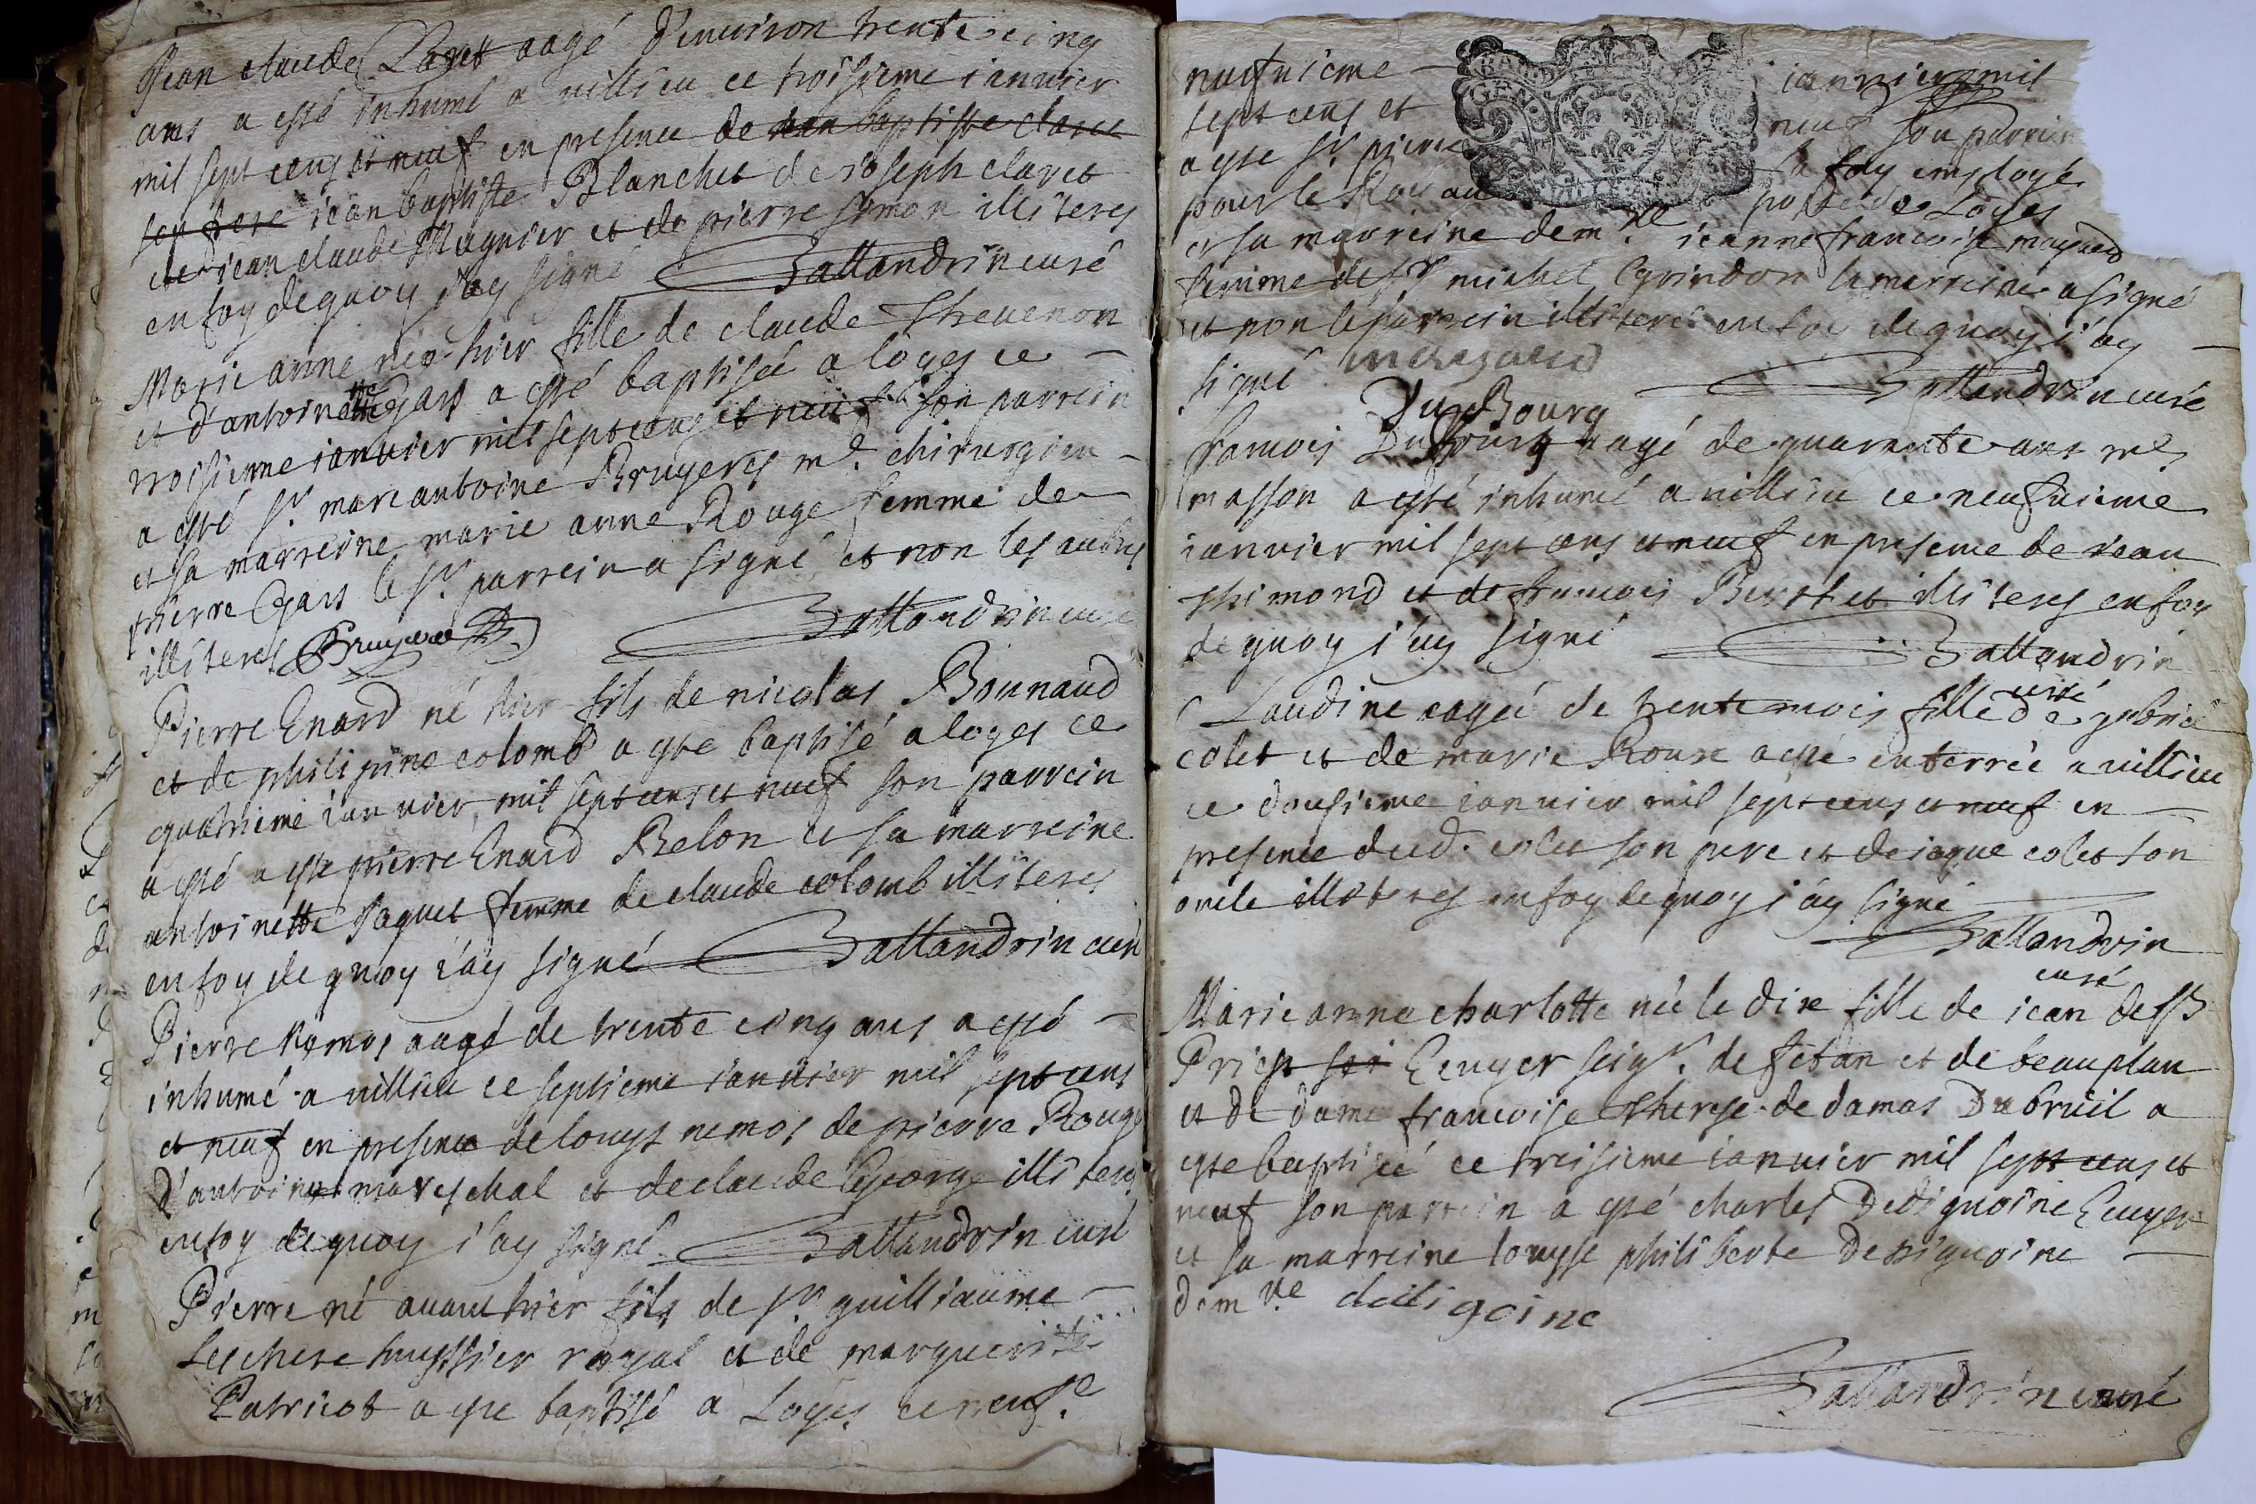 Jean claude Claret aagé d'environ trente cinq
ans a esté inhumé a villieu ce troisieme ianvier
mil sept cens et neuf en presence de jean baptiste claret
son frere iean baptiste Blanchet de ioseph claret
de iean claude Mugnier et de pierre simon illiteres
en foy dequoy j'ay signé Ballandrin curé
Marie anne née hier fille de claude Thevenon
et d'antoinette Gars a esté baptisée a loyes ce
troisieme ianvier mil sept cens et neuf son parrein
a esté sr. marc antoine Bruyeres me. chirurgien
et sa marreine marie anne Rouge femme de
pierre Gars le sr. parrein a signé et non les autres
illiteres Bruyere Ballandrin curé
Pierre Enard né hier fils de nicolas Bonnaud
et de philipine colomb a esté baptisé a loyes ce
quatrieme ianvier mil sept cens et neuf son parrein
a esté a esté pierre Enard Belon et sa marreine
antoinette Paquet femme de claude colomb illiteres
en foy de quoy i'ay signé Ballandrin curé
Pierre Ramos aagé de trente cinq ans a esté
inhumé a villieu ce septieme ianvier mil sept cens
et neuf en presence de louys nemos de pierre Rouge
d'antoine mareschal et de claude George illiteres
en foy de quoy i'ay signé Ballandrin curé
Pierre né avanthier fils de sr guilliaume
Leschere huyssier royal et de marguerite
Patricot a esté baptisé a Loyes ce neufe
neufvieme ianvier mil
sept cens et neuf son parrein
a esté sr. pierre la fay employé
pour le Roy au poste de Loyes
et sa marreine demlle ieanne francoise mayeud
femme de sr michel Grindon la marreine a signé
et non le parrein illiteré en foy de quoy i'ay
signé Ballandrin curé
Du Bourg
francois Dubourg aagé de quarante ans me
masson a esté inhumé a villieu ce neufvieme
ianvier mil sept cens et neuf en presence de iean
phimond et de francois Berthet illiteres en foy
de quoy i'ay signé Ballandrin
curé
Claudine aagée de trente mois fille de gabriel
colet et de marie Roux a esté enterrée a villieu
ce dousieme ianvier mil sept cens et neuf en
presence dud. colet son pere et de iaque colet son
oncle illiteres en foy de quoy i'ay signé
Ballandrin
curé
Marie anne charlotte née le dix fille de iean de st
Priest Ecuyer seigr. de fetan et de beauplan
et de dame francoise Therese de damas Dubruil a
esté baptisée ce treisieme ianvier mil sept cens et
neuf son parrein a esté charles Dedignoine Ecuyer
et sa marreine louyse philiberte Dedignoine
demlle
Ballandrin curé